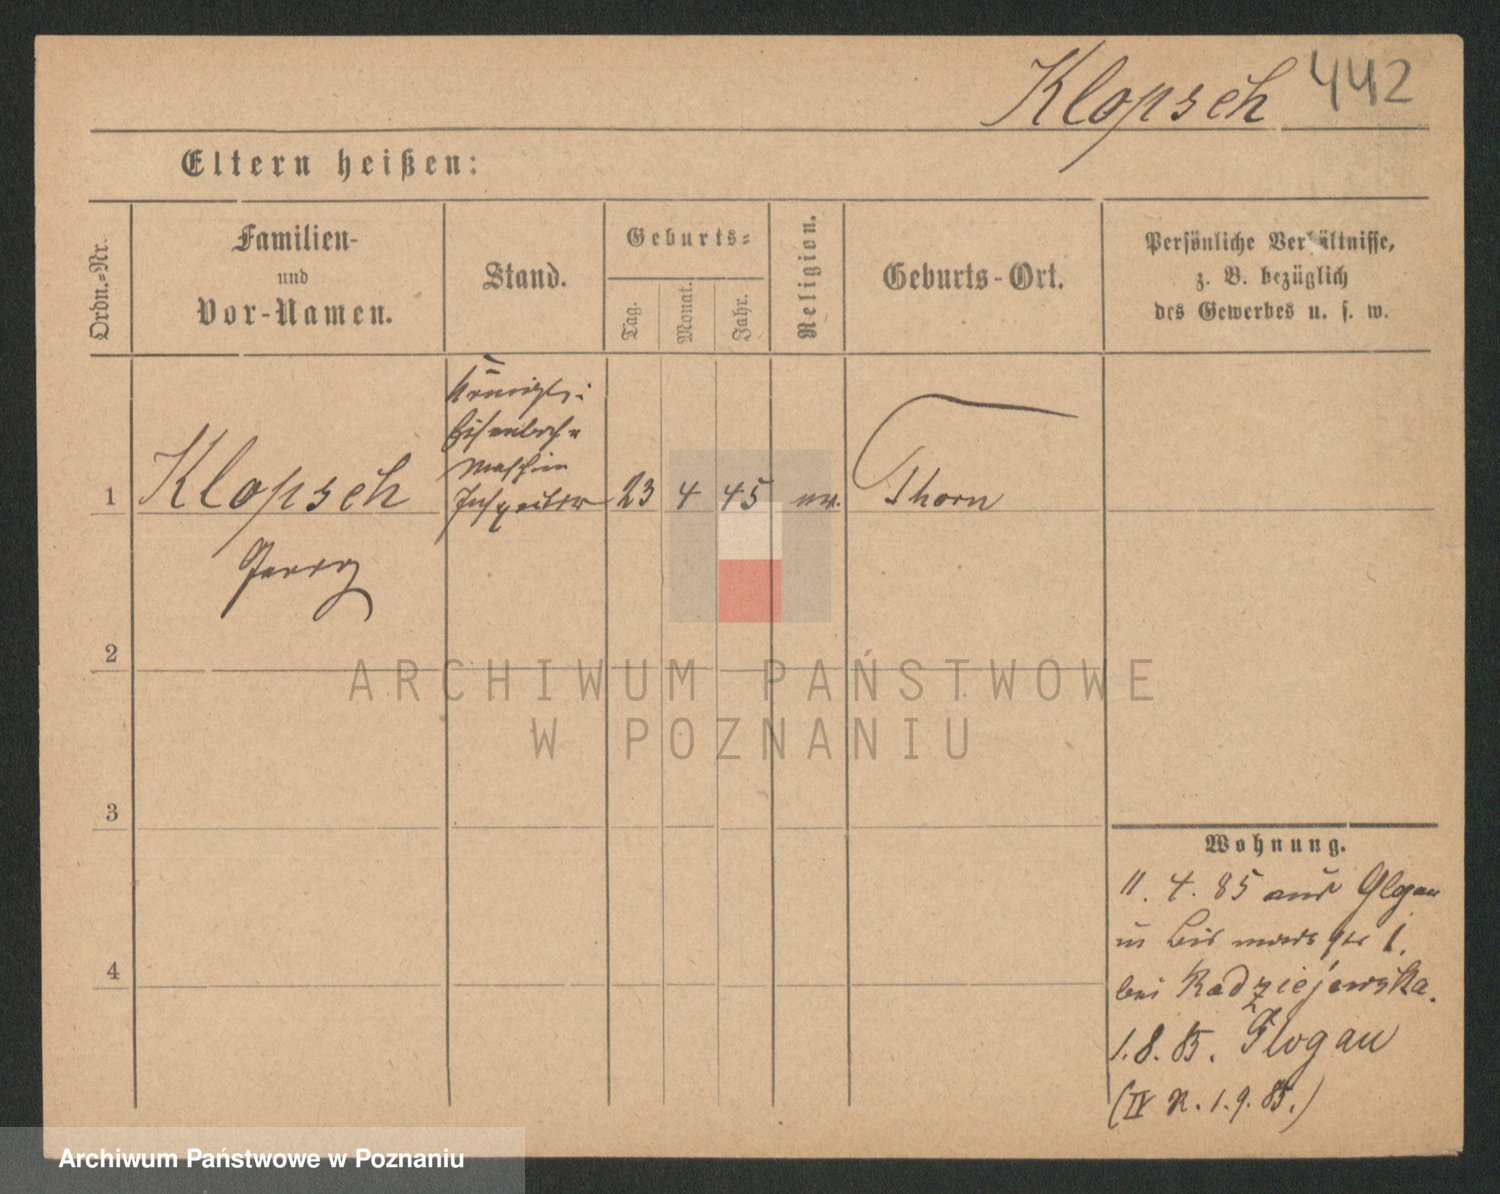 Klopsch 442
Eltern heißen:
Ordn.-Nr.
Familien-
und
Vor-Namen.
Stand.
Geburts-
Tag.
Monat.
Jahr.
Religion.
Geburts-Ort.
Persönliche Verhältnisse,
z. B. bezüglich
des Gewerbes u. s. w.
1
Klopsch
Königl.
Eisenbahn
Maschin
Inspektor
23 4 45
Thorn
2
3
4
Wohnung.
11. 4. 85 aus Glgau
1.
bei Radziejewska.
1.8.85. Glogau
(IV R. 1.9.85.)
ARCHIWUM PAŃSTWOWE
W POZNANIU
Archiwum Państwowe w Poznaniu